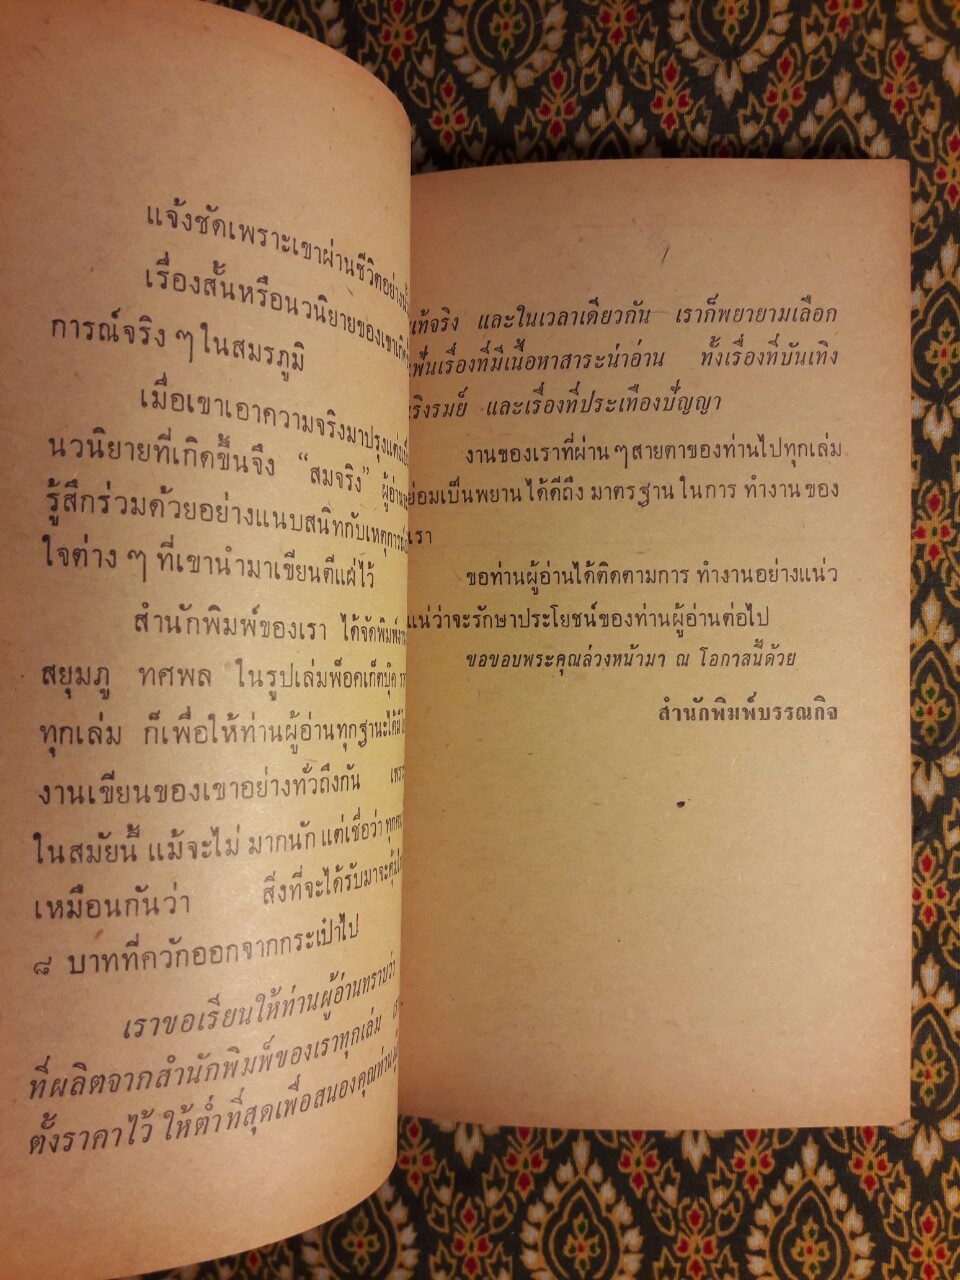 แจ้งชัดเพราะเขาผ่านชีวิตอย่างนั้น
เรื่องสั้นหรือนวนิยายของเขาเกิด
การณ์จริง ๆ ในสมรภูมิ
เมื่อเขาเอาความจริงมาปรุงแต่ง
นวนิยายที่เกิดขึ้นจึง “สมจริง” ผู้อ่าน
รู้สึกร่วมด้วยอย่างแนบสนิทกับเหตุการณ์
ใจต่าง ๆ ที่เขานำมาเขียนตีแผ่ไว้
สำนักพิมพ์ของเรา ได้จัดพิมพ์
สยุมภู ทศพล ในรูปเล่มพ็อคเก็ตบุ๊ค
ทุกเล่ม ก็เพื่อให้ท่านผู้อ่านทุกฐานะได้
งานเขียนของเขาอย่างทั่วถึงกัน
ในสมัยนี้ แม้จะไม่ มากนัก แต่เชื่อว่า
เหมือนกันว่า สิ่งที่จะได้รับมาจะคุ้ม
๘ บาทที่ควักออกจากกระเป๋าไป
เราขอเรียนให้ท่านผู้อ่านทราบว่า
ที่ผลิตจากสำนักพิมพ์ของเราทุกเล่ม
ตั้งราคาไว้ ให้ต่ำที่สุดเพื่อสนองคุณท่าน
แท้จริง และในเวลาเดียวกัน เราก็พยายามเลือก
เฟ้นเรื่องที่มีเนื้อหาสาระน่าอ่าน ทั้งเรื่องที่บันเทิง
เริงรมย์ และเรื่องที่ประเทืองปัญญา
งานของเราที่ผ่าน ๆ สายตาของท่านไปทุกเล่ม
ย่อมเป็นพยาน ได้ดีถึง มาตรฐาน ในการ ทำงาน ของ
เรา
ขอท่านผู้อ่านได้ติดตามการ ทำงานอย่างแน่ว
แน่ว่าจะรักษาประโยชน์ของท่านผู้อ่านต่อไป
ขอขอบพระคุณล่วงหน้ามา ณ โอกาสนี้ด้วย
สำนักพิมพ์บรรณกิจ